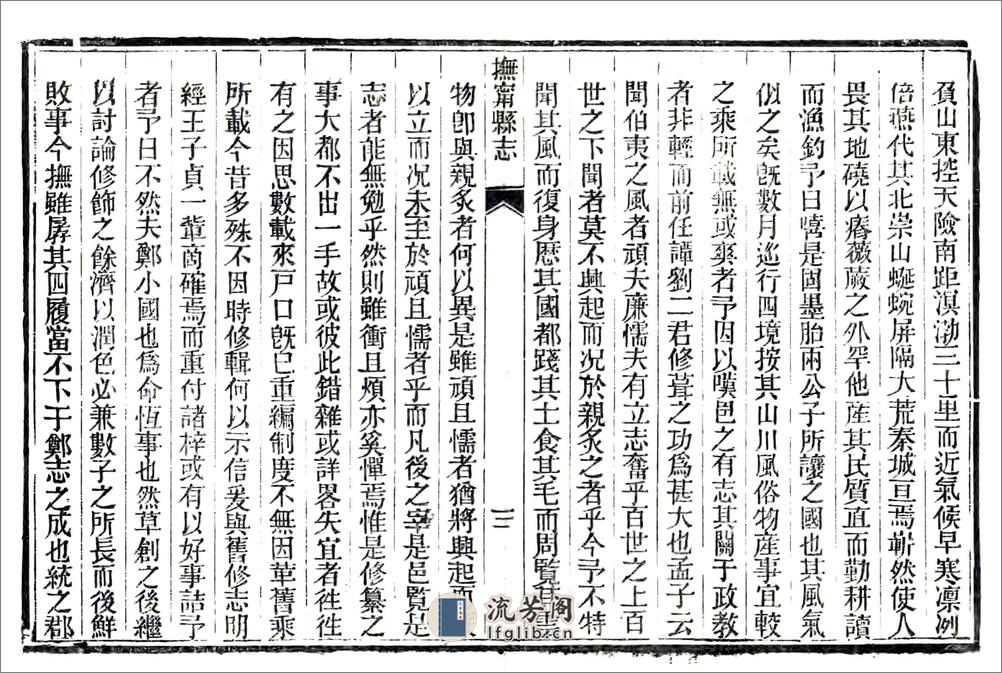 負山東控天險南距溟渤三十里而近氣候早寒凛冽
倍燕代其北崇山蜒蜿屏隔大荒秦城亘焉嶄然使人
畏其地磽以瘠薇蕨之外罕他産其民質直而勤耕讀
而漁釣予曰嘻是固墨胎兩公子所讓之國也其風氣
似之矣旣數月遙行四境按其山川風俗物産事宜較
之乘所載無或爽者予因以嘆邑之有志其關于政教
者非輕而前任譚劉二君修葺之功爲甚大也孟子云
聞伯夷之風者頑夫廉懦夫有立志奮乎百世之上百
世之下聞者莫不興起而况於親炙之者乎今予不特
聞其風而復身歴其國都踐其土食其毛而周覽其
撫甯縣志
三
物卽與親炙者何以異是雖頑且懦者猶將興起而
以立而况未至於頑且懦者乎而凡後之宰是邑覽是
志者能無勉乎然則雖衝且煩亦奚憚焉惟是修纂之
事大都不出一手故或彼此錯雜或詳畧失宜者徃徃
有之因思數載來戸口旣已重編制度不無因革舊乘
所載今昔多殊不因時修輯何以示信爰與舊修志明
經王子貞一輩商確焉而重付諸梓或有以好事詰予
者予曰不然夫鄭小國也爲命恆事也然草創之後繼
以討論修飾之餘濟以潤色必兼數子之所長而後鮮
敗事今撫雖孱其四履當不下于鄭志之成也統之郡
流芳閣
lfglib.cn